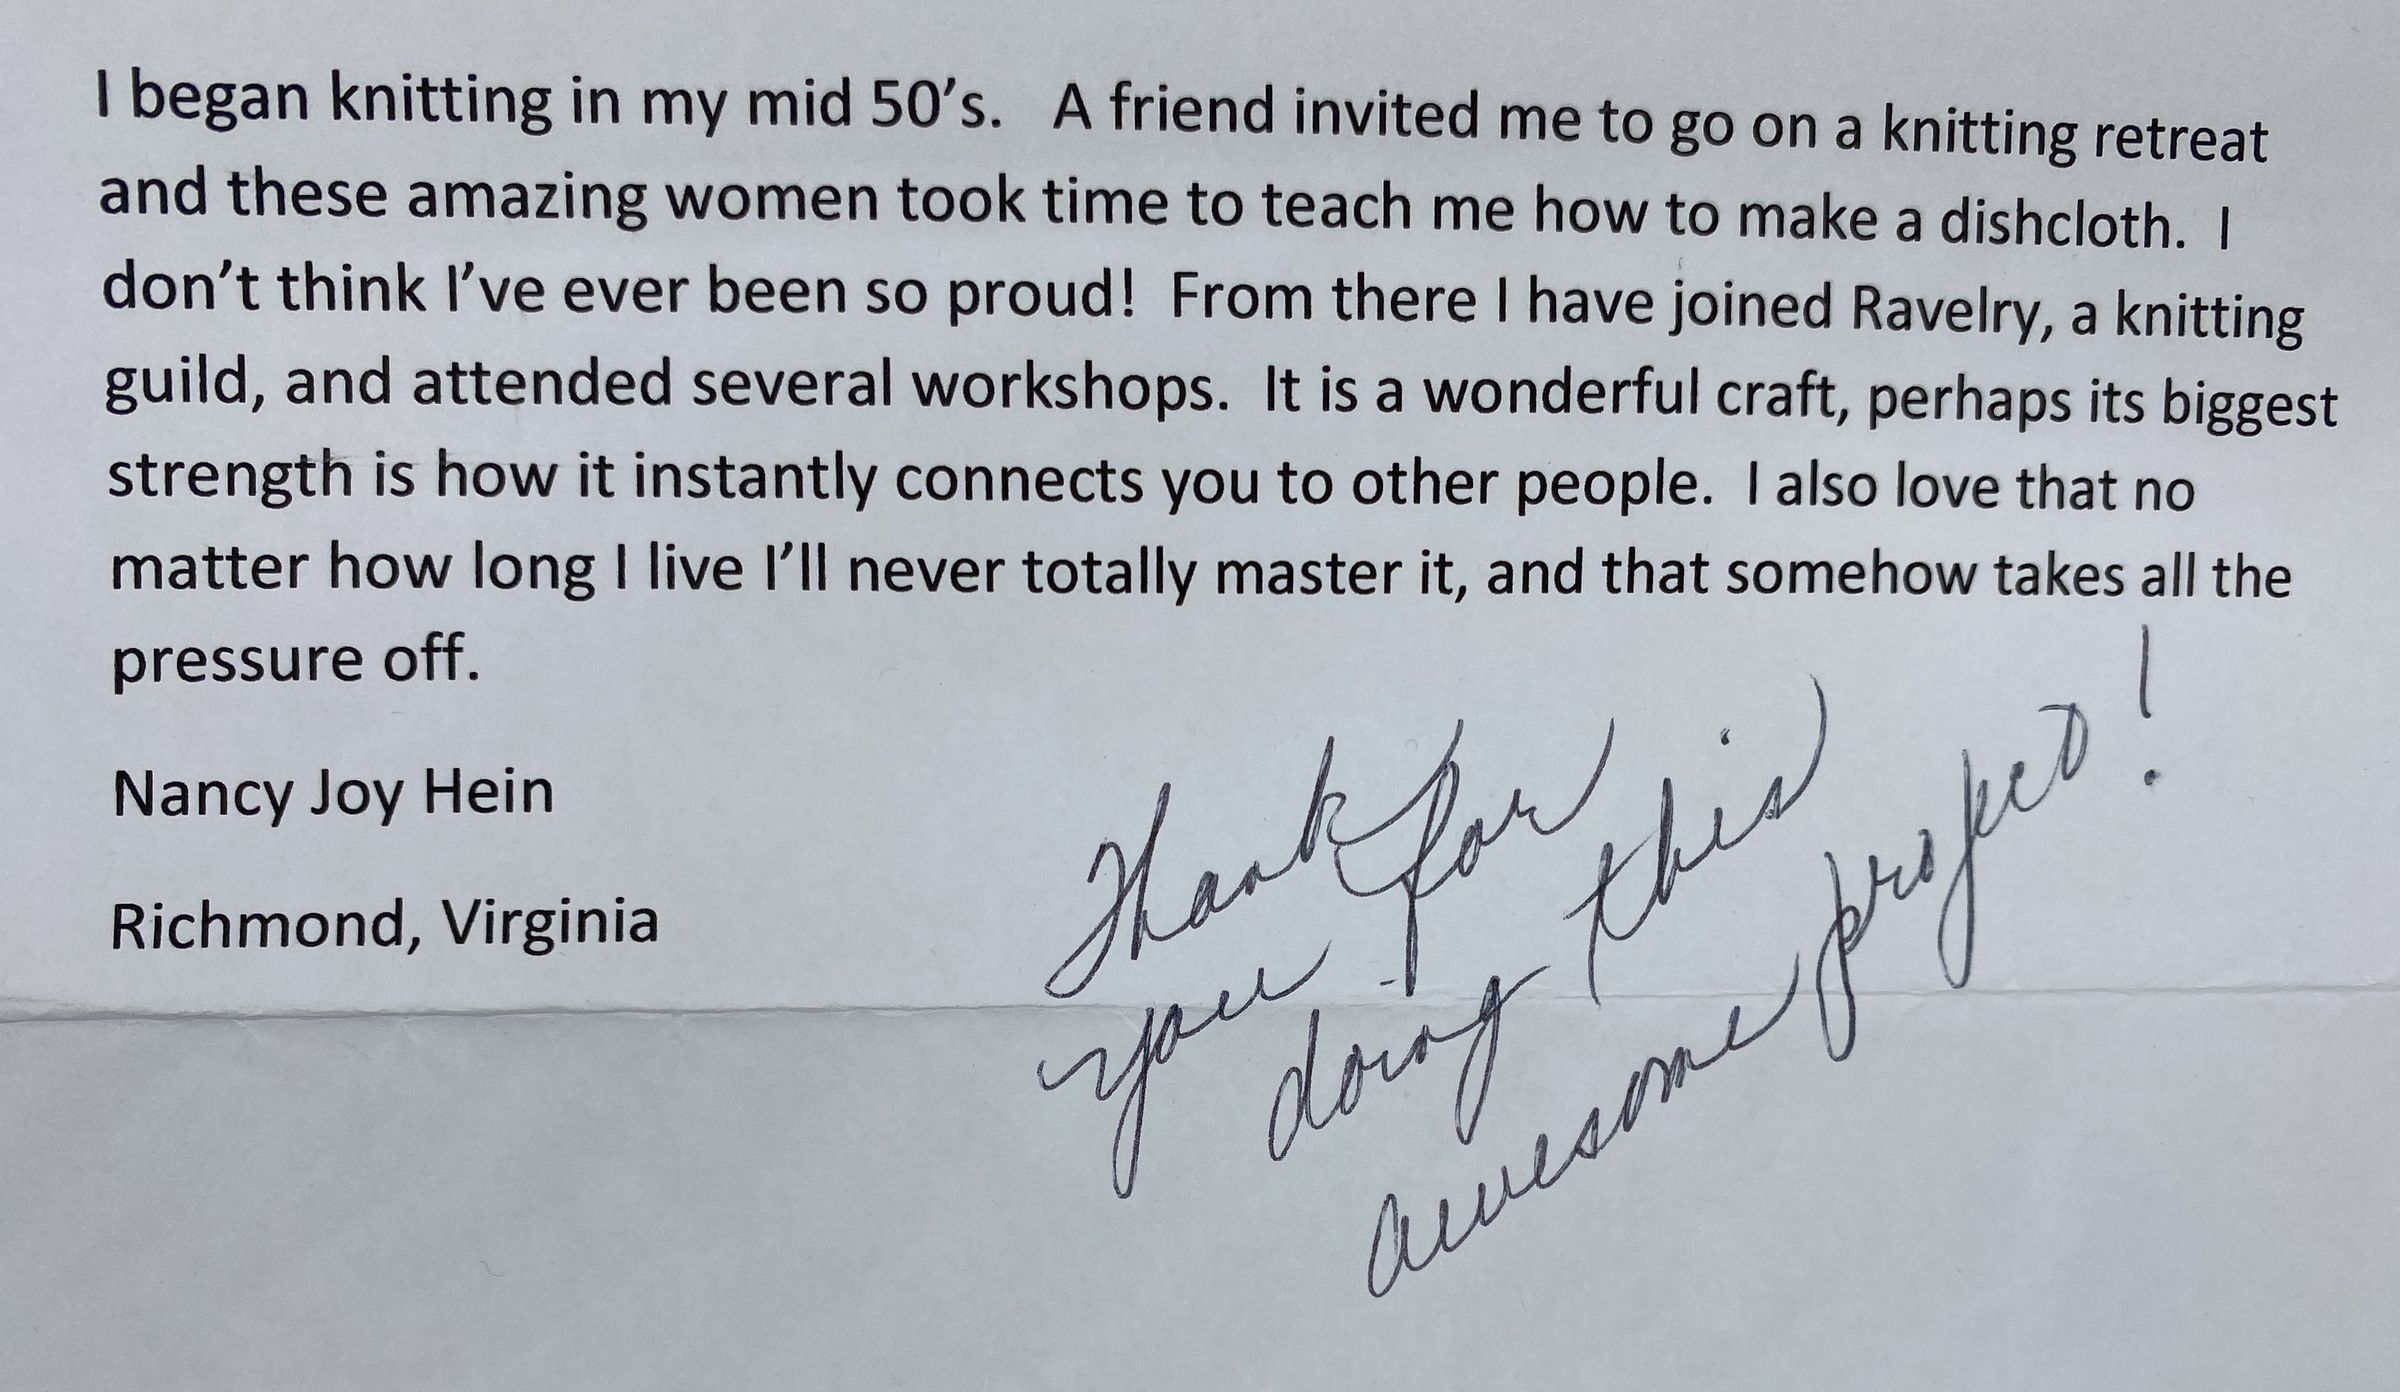 I began knitting in my mid 50's.   A friend invited me to go on a knitting retreat
and these amazing women took time to teach me how to make a dishcloth.  I
don't think I've ever been so proud!  From there I have joined Ravelry, a knitting
guild, and attended several workshops.  It is a wonderful craft, perhaps its biggest
strength is how it instantly connects you to other people.  I also love that no
matter how long I live I'll never totally master it, and that somehow takes all the
pressure off.
Nancy Joy Hein
Richmond, Virginia
Thank
you for
doing this
awesome project!